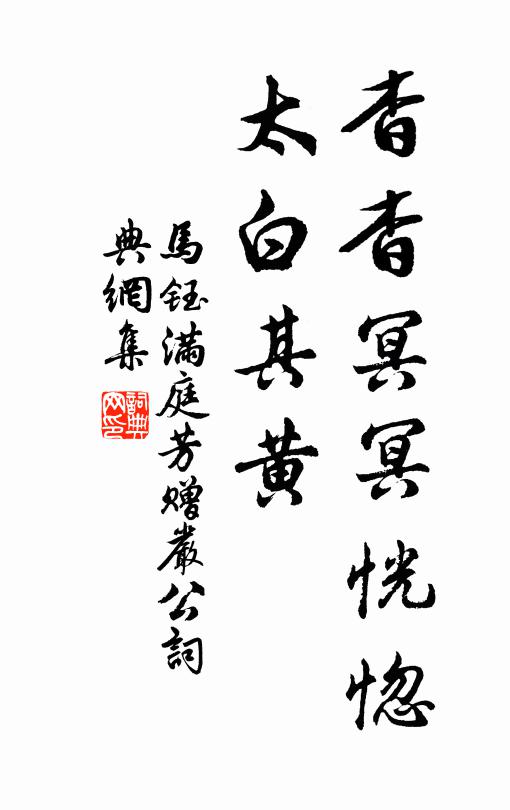 杳杳冥冥恍惚
太白其黄
馬鈺满庭芳赠嚴公詞
典網集
詞典网印